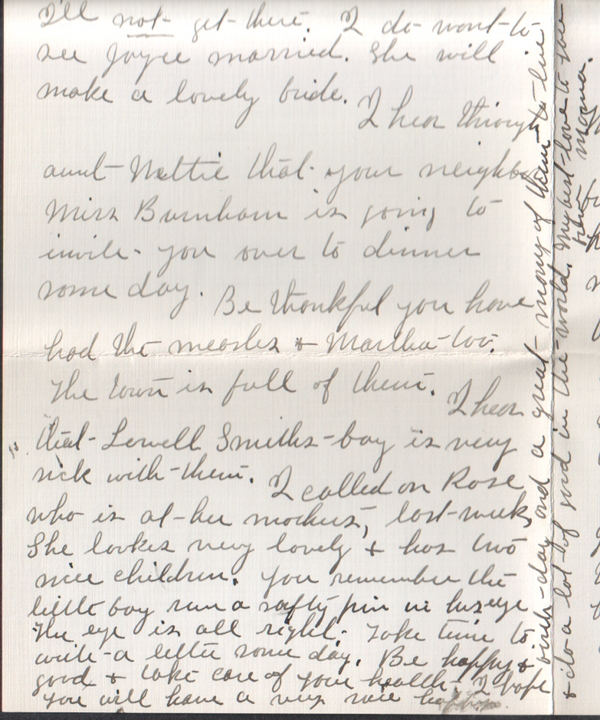 I'll not get there. I do want to
see Joyce married. She will
make a lovely bride.
I hear through
aunt Nettie that your neighbor
Miss Burnham is going to
invite you over to dinner
some day. Be thankful you have
had the measles & Martha too.
The town is full of them. I hear
that Lowell Smiths boy is very
sick with them. I called on Rose
who is at her mothers, last week,
She looks very lovely & has two
nice children. You remember the
little boy run a safty pin in his eye
The eye is all right. Take time to
write a letter some day. Be happy &
good & take care of your health. I hope
you will have a very nice
birth-day and a great many of them to live
& do a lot of good in the world. My best love to you